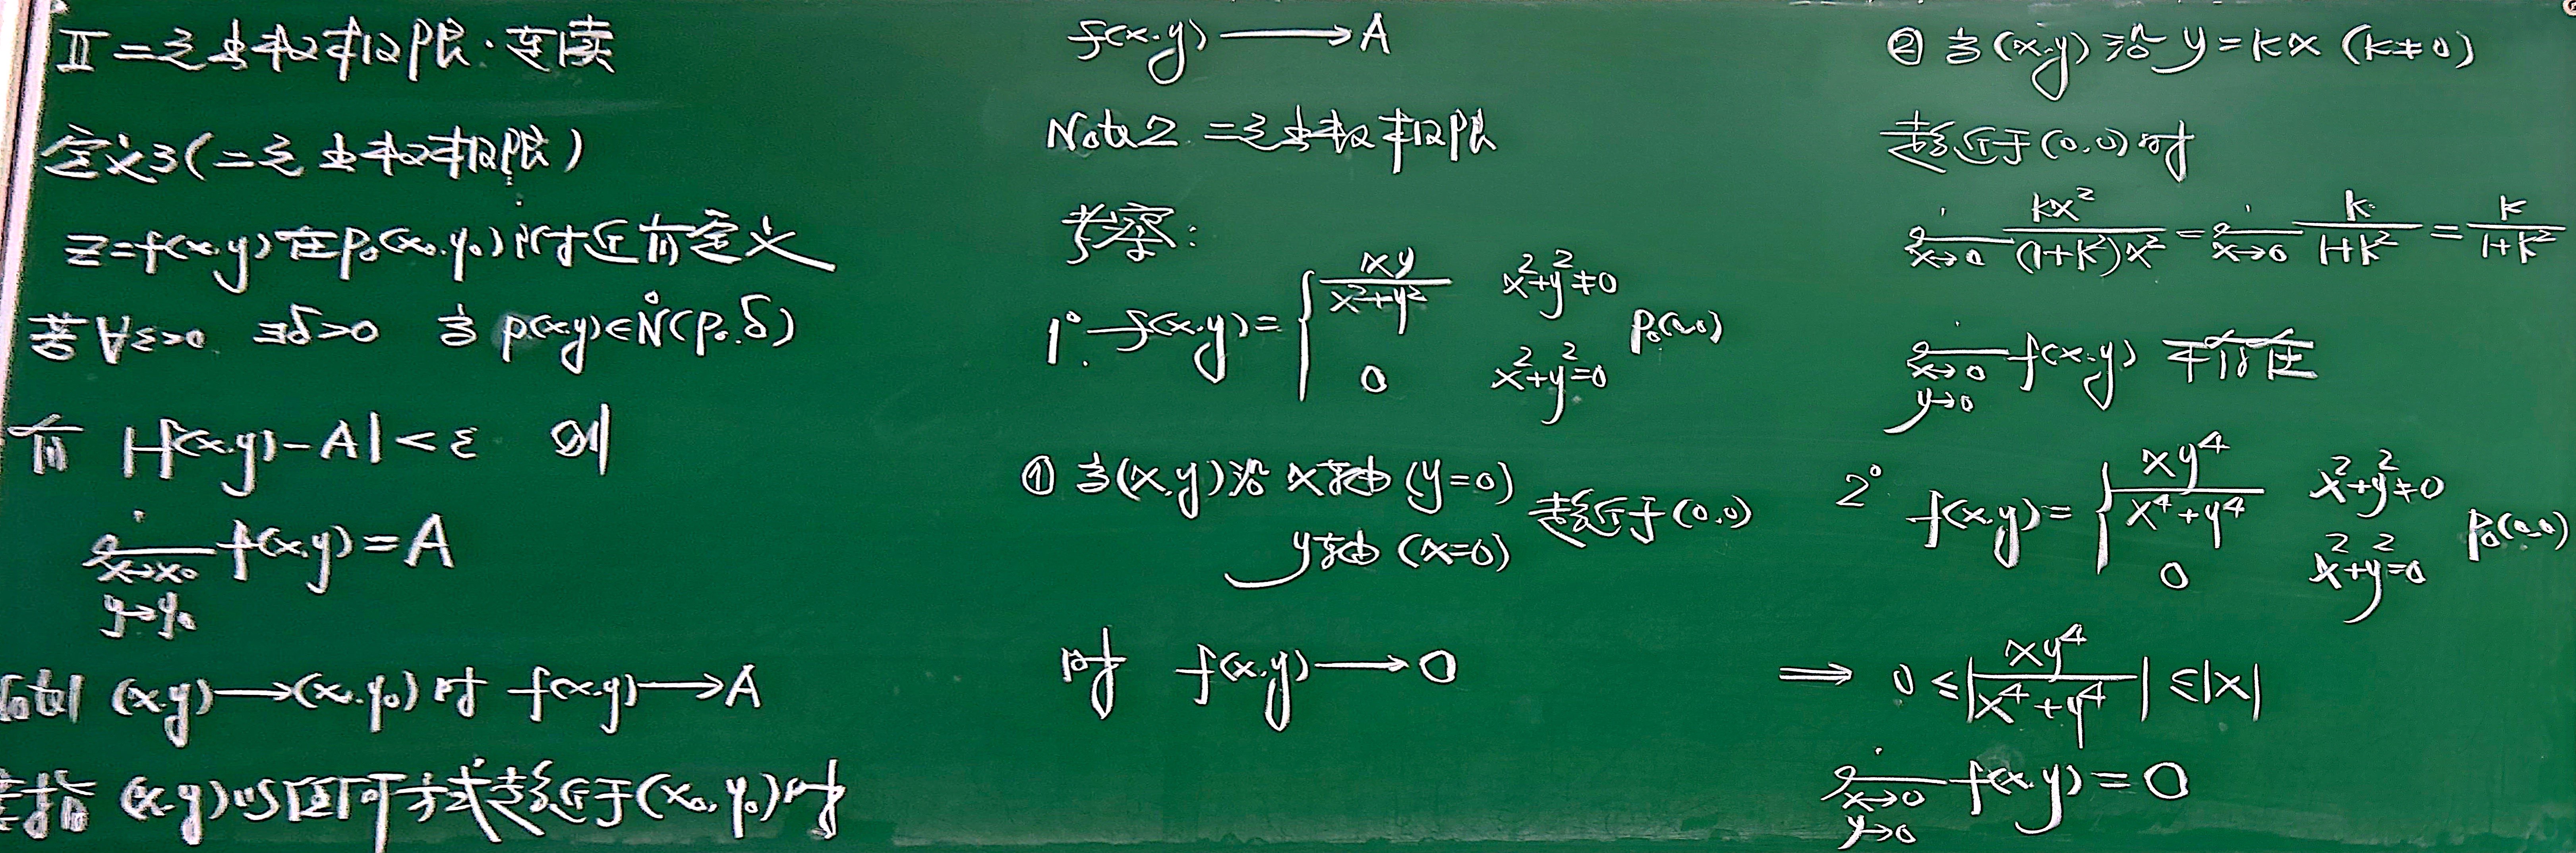 II 二主要极限.连续
定义3(二主要极限)
z=f(x.y)在P₀(x₀.y₀)附近有定义
若∀ε>0. ∃δ>0 当 P(x.y)∈N̊(P₀.δ)
有 |f(x.y)-A|<ε 则
lim_{x→x₀ y→y₀} f(x.y)=A
Note1 (x.y)→(x₀.y₀)时 f(x.y)→A
是指 (x.y)以任何方式趋近于(x₀.y₀)时
f(x.y)→A
Note2. 二主要极限
考察:
1°. f(x.y)={ xy/(x²+y²) x²+y²≠0
0 x²+y²=0 P₀(0.0)
① 当(x.y)沿 x轴(y=0)
y轴(x=0) 趋近于(0.0)
时 f(x.y)→0
② 当(x.y)沿 y=kx (k≠0)
趋近于(0.0)时
lim_{x→0} kx²/((1+k²)x²) = lim_{x→0} k/(1+k²) = k/(1+k²)
lim_{x→0 y→0} f(x.y) 不存在
2° f(x.y)={ xy⁴/(x⁴+y⁴) x²+y²≠0
0 x²+y²=0 P₀(0.0)
⟹ 0≤|xy⁴/(x⁴+y⁴)|≤|x|
lim_{x→0 y→0} f(x.y)=0